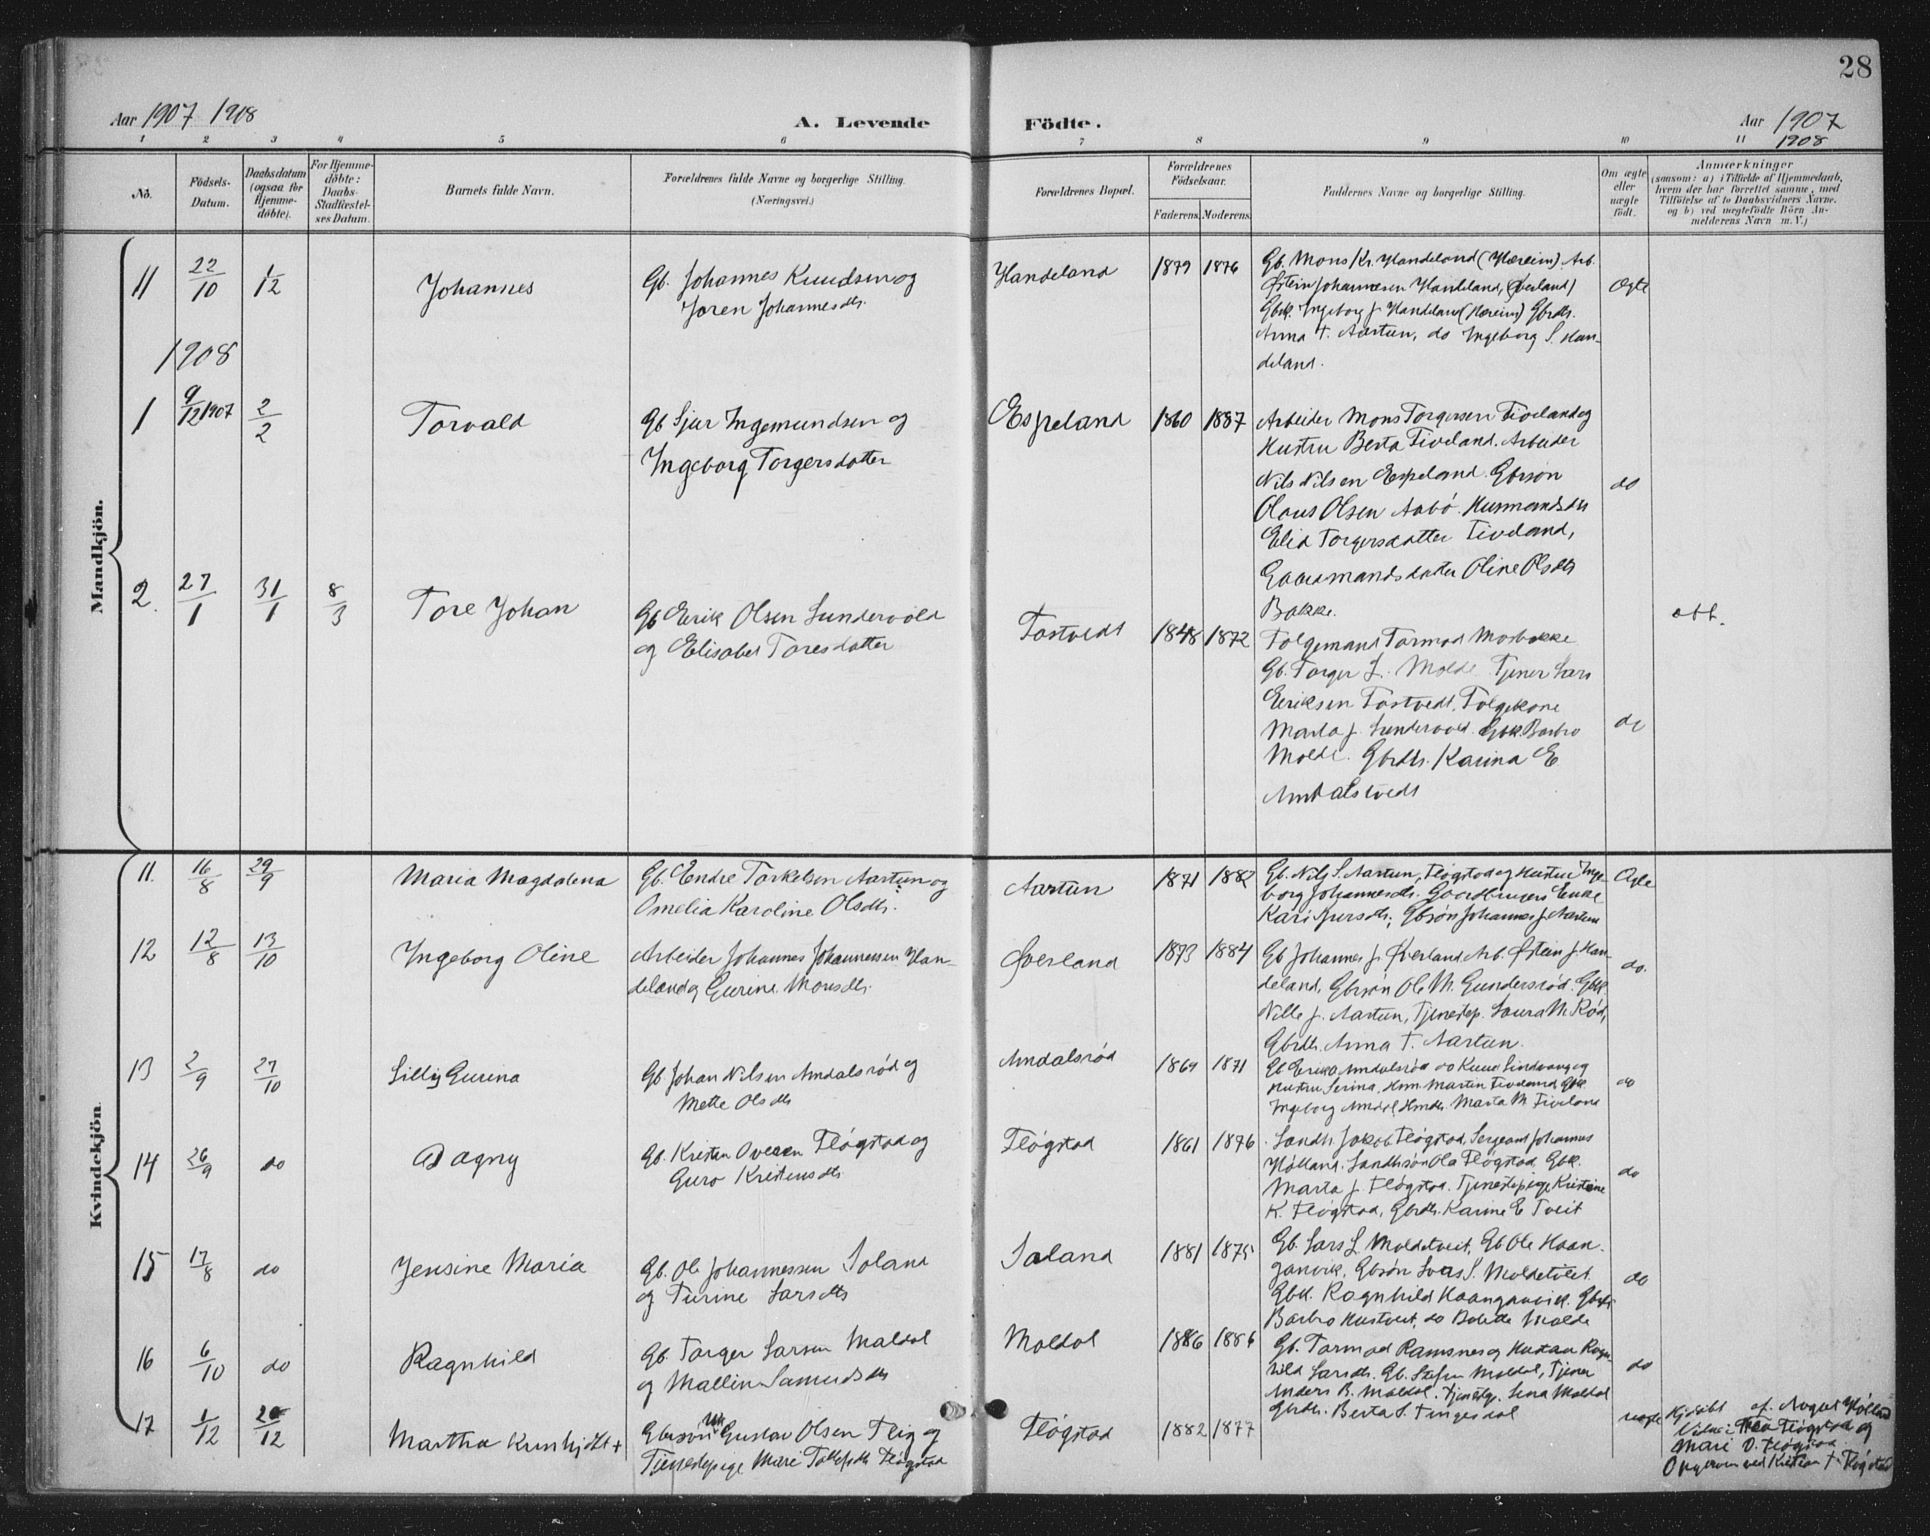 28
Aar 1907 1908
A. Levende Födte.
Aar 1907
1908
1 2 3 4 5 6 7 8 9 10 11
No.
Födsels-
Datum.
Daabsdatum
(ogsaa for
Hjemme-
döbte).
For Hjemme-
döbte:
Daabs-
Stadfæstel-
ses Datum.
Barnets fulde Navn.
Forældrenes fulde Navne og borgerlige Stilling.
(Næringsvei.)
Forældrenes Bopæl.
Forældrenes
Födselsaar.
Faderens. Moderens.
Faddernes Navne og borgerlige Stilling.
Om ægte
eller
uægte
födt.
Anmærkninger
(saasom: a) i Tilfælde af Hjemmedaab,
hvem der har forrettet samme, med
Tilföielse af to Daabsvidners Navne.
og b) ved uægtefödte Börn An-
melderens Navn m. V.)
Mandkjön.
11 22/10 1/12 Johannes
Gb. Johannes Knudsen og
Joren Johannesdtr.
Handeland 1879 1876
Gb. Mons Kr. Handeland (Hæreim) Arb.
Østein Johannesen Handeland, (Øverland)
Gbk. Ingeborg J. Handeland (Hæreim) Gbrdtr.
Anna T. Aartun, do Ingeborg S. Han-
deland.
Ægte
1908
1 9/12 1907 2/2 Torvald
Gb Sjur Ingemundsen og
Ingeborg Torgersdatter
Espeland 1860 1887
Arbeider Mons Torgersen Tiveland og
Hustru Berta Tiveland. Arbeider
Nils Nilsen Espeland. Gbrsön
Olaus Olsen Aabö. Husmandsdtr
Elid Torgersdatter Tiveland,
Gaardmandsdatter Oline Olsdtr
Bakke.
do
2. 27/1 31/1 8/3 Tore Johan
Gb Eerik Olsen Sundervold
og Elisabet Toresdatter
Tostvedt 1848 1872
Folgemand Tormod Mosbakke
Gb. Torger L. Molde Tjener Lars
Eeriksen Tostvedt, Folgekone
Marta J. Sundervold. Gbk Barbro
Molde. Gbrdtr. Karina E
Amdalstvedt
do
att.
Kvindekjön.
11. 16/8 29/9 Maria Magdalena
Gb. Endre Torkelsen Aartun og
Omelia Karoline Olsdtr.
Aartun 1871 1882
Gb. Nils S. Aartun, Flögstad og Hustru Inge-
borg Johannesdtr. Gaardbrugers Enke
Kari Sjursdtr; Gbsön Johannes J. Aartun
Ægte
12 12/8 13/10 Ingeborg Oline
Arbeider Johannes Johannessen Han-
deland og Gurine Monsdtr.
Øverland 1873 1884
Gb Johannes J. Øverland Arb. Østein J. Han-
deland, Gbrsön Ole M. Gundersröd. Gbk.
Nille J. Aartun, Tjenestep. Laura M. Röd,
Gbrdtr. Anna T. Aartun.
do.
13 2/9 27/10 Lilly Gurina
Gb Johan Nilsen Amdalsröd og
Mette Olsdtr
Amdalsröd 1869 1871
Gb Erik Amdalsröd do Knud Lindvang og
Hustru Serina, Hmn. Martin Tiveland Gbk.
Ingeborg Amdal, Hmdtr. Marta M. Tiveland
do
14 26/9 do Dagny
Gb. Kristen Ovesen Flögstad og
Guro Kristensdtr
Flögstad 1861 1876
Landh. Jakob Flögstad, Sergeant Johannes
Hölland. Landhsön Ola Flögstad Gbk.
Marta J. Flögstad. Tjenestepige Kristine
K. Flögstad, Gbrdtr. Karine E Tveit
do
15 17/8 do Jensine Maria
Gb. Ole Johannessen Soland
og Turine Larsdtr
Soland 1881 1875
Gb. Lars L. Moldetveit, Gb Ole Haan-
ganvik, Gbsön Lars S. Moldetveit
Gbk. Ragnhild Haanganvik. Gbdtr
Barbro Hustveit, do Bolette Molde
do
16 6/10 do Ragnhild
Gb. Torger Larsen Maldal
og Mallin Samundsdtr
Moldal 1886 1886
Gb. Tormod Ramsnes og Hustru Ragn-
hild Larsdtr. Gb. Stefen Moldal, Tjener
Anders B. Moldal. Tjenstpg. Lena Moldal
Gbrdtr. Berta S. Tungesdal
do
17 1/12 26/12 Martha
Gbrsön Gustav Olsen Fleig og
Tjenestepige Mari Flögstad
Flögstad 1882 1877
uægte
Hjdöbt af August Hölland
Vidner Thea Flögstad og
Mari O. Flögstad
Opgiven ved Kristian T. Flögstad